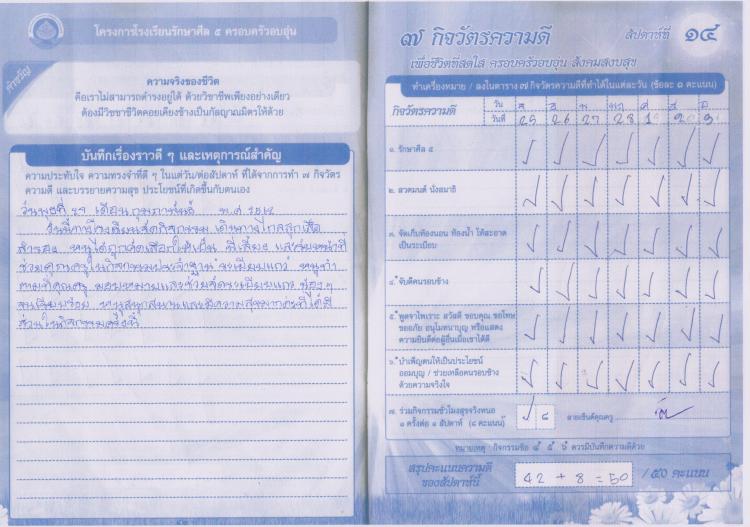 โครงการโรงเรียนรักษาศีล ๕ ครอบครัวอบอุ่น
คำขวัญ
ความจริงของชีวิต
คือเราไม่สามารถดำรงอยู่ได้ ด้วยวิชาชีพเพียงอย่างเดียว
ต้องมีวิชชาชีวิตคอยเคียงข้างเป็นกัลญาณมิตรให้ด้วย
บันทึกเรื่องราวดี ๆ และเหตุการณ์สำคัญ
ความประทับใจ ความทรงจำที่ดี ๆ ในแต่วัน/ต่อสัปดาห์ ที่ได้จากการทำ ๗ กิจวัตร
ความดี และบรรยายความสุข ประโยชน์ที่เกิดขึ้นกับตนเอง
วันพุธที่ ๒๗ เดือน กุมภาพันธ์ พ.ศ ๒๕๖๒
วันนี้ทางโรงเรียนจัดกิจกรรม เดินทางไกลลูกเสือ
สำรอง หนูได้ถูกคัดเลือกให้เป็น พี่เลี้ยง และทำหน้าที่
ช่วยคุณครูในกิจกรรมประจำฐาน ระเบียบแถว หนูทำ
ตามที่คุณครู มอบหมายและช่วยจัดระเบียบแถว น้องๆ
จนเรียบร้อย หนูสนุกสนานและมีความสุขมากค่ะที่ได้มี
ส่วนในกิจกรรมครั้งนี้
๗ กิจวัตรความดี สัปดาห์ที่ ๑๔
เพื่อชีวิตที่สดใส ครอบครัวอบอุ่น สังคมสงบสุข
ทำเครื่องหมาย / ลงในตาราง ๗ กิจวัตรความดีที่ทำได้ในแต่ละวัน (ข้อละ ๑ คะแนน)
กิจวัตรความดี วัน จ อ พ พฤ ศ ส อ
วันที่ 25 26 27 28 1 2 3
๑. รักษาศีล ๕
๒. สวดมนต์ นั่งสมาธิ
๓. จัดเก็บห้องนอน ห้องน้ำ ให้สะอาด
เป็นระเบียบ
๔. จับดีคนรอบข้าง
๕. พูดจาไพเราะ สวัสดี ขอบคุณ ขอโทษ
ขออภัย อนุโมทนาบุญ หรือแสดง
ความยินดีต่อผู้อื่นเมื่อเขาได้ดี
๖. บำเพ็ญตนให้เป็นประโยชน์
ออมบุญ / ช่วยเหลือคนรอบข้าง
ด้วยความจริงใจ
๗. ร่วมกิจกรรมชั่วโมงสุขจริงหนอ
๑ ครั้งต่อ ๑ สัปดาห์ (๘ คะแนน) ๘ ลายเซ็นต์คุณครู
หมายเหตุ : กิจกรรมข้อ ๔ ๕ ๖ ควรมีบันทึกความดีด้วย
สรุปคะแนนความดี
ของสัปดาห์นี้ 42 + 8 = 50 / ๕๐ คะแนน